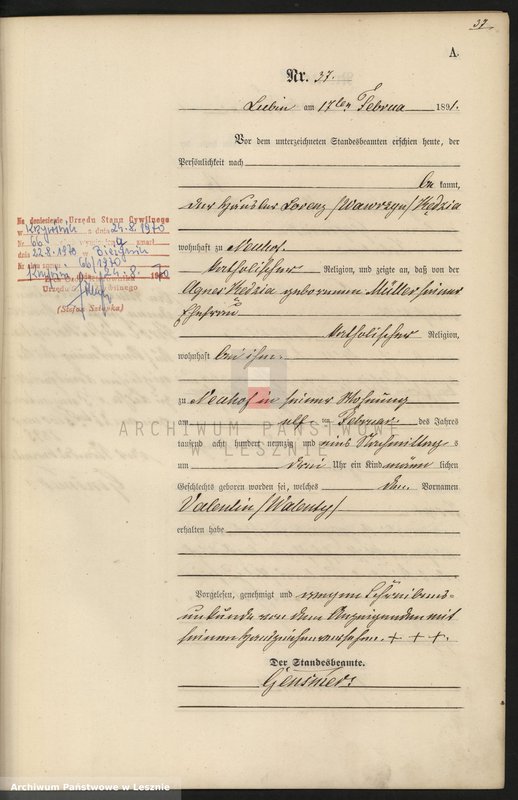 37
A.
Nr. 37.
Lubin am 17ten Februar 1891.
Vor dem unterzeichneten Standesbeamten erschien heute, der
Persönlichkeit nach
be kannt,
der Häusler Lorenz /Wawrzyn/ Kędzia
wohnhaft zu Neuhof
katholischer Religion, und zeigte an, daß von der
Agnes Kędzia geborenen Müller seiner
Ehefrau
katholischer Religion,
wohnhaft bei ihm
zu Neuhof in seiner Wohnung
am elften Februar des Jahres
tausend acht hundert neunzig und eins Nachmittags
um drei Uhr ein Kind männlichen
Geschlechts geboren worden sei, welches den Vornamen
Valentin /Walenty/
erhalten habe
Vorgelesen, genehmigt und wegen Schreibens-
unkunde von dem Anzeigenden mit
seinen Handzeichen versehen. + + +.
Der Standesbeamte.
Na doniesienie Urzędu Stanu Cywilnego
w Krzywiń z dnia 24.8.1970
Nr 66 zmarł
dnia 22.8.1970 w
Nr aktu zgonu 66/1970
Krzywiń 24.8.1970
Urzędu Stanu Cywilnego
(Stefan
ARCHIWUM PAŃSTWOWE
W LESZNIE
Archiwum Państwowe w Lesznie